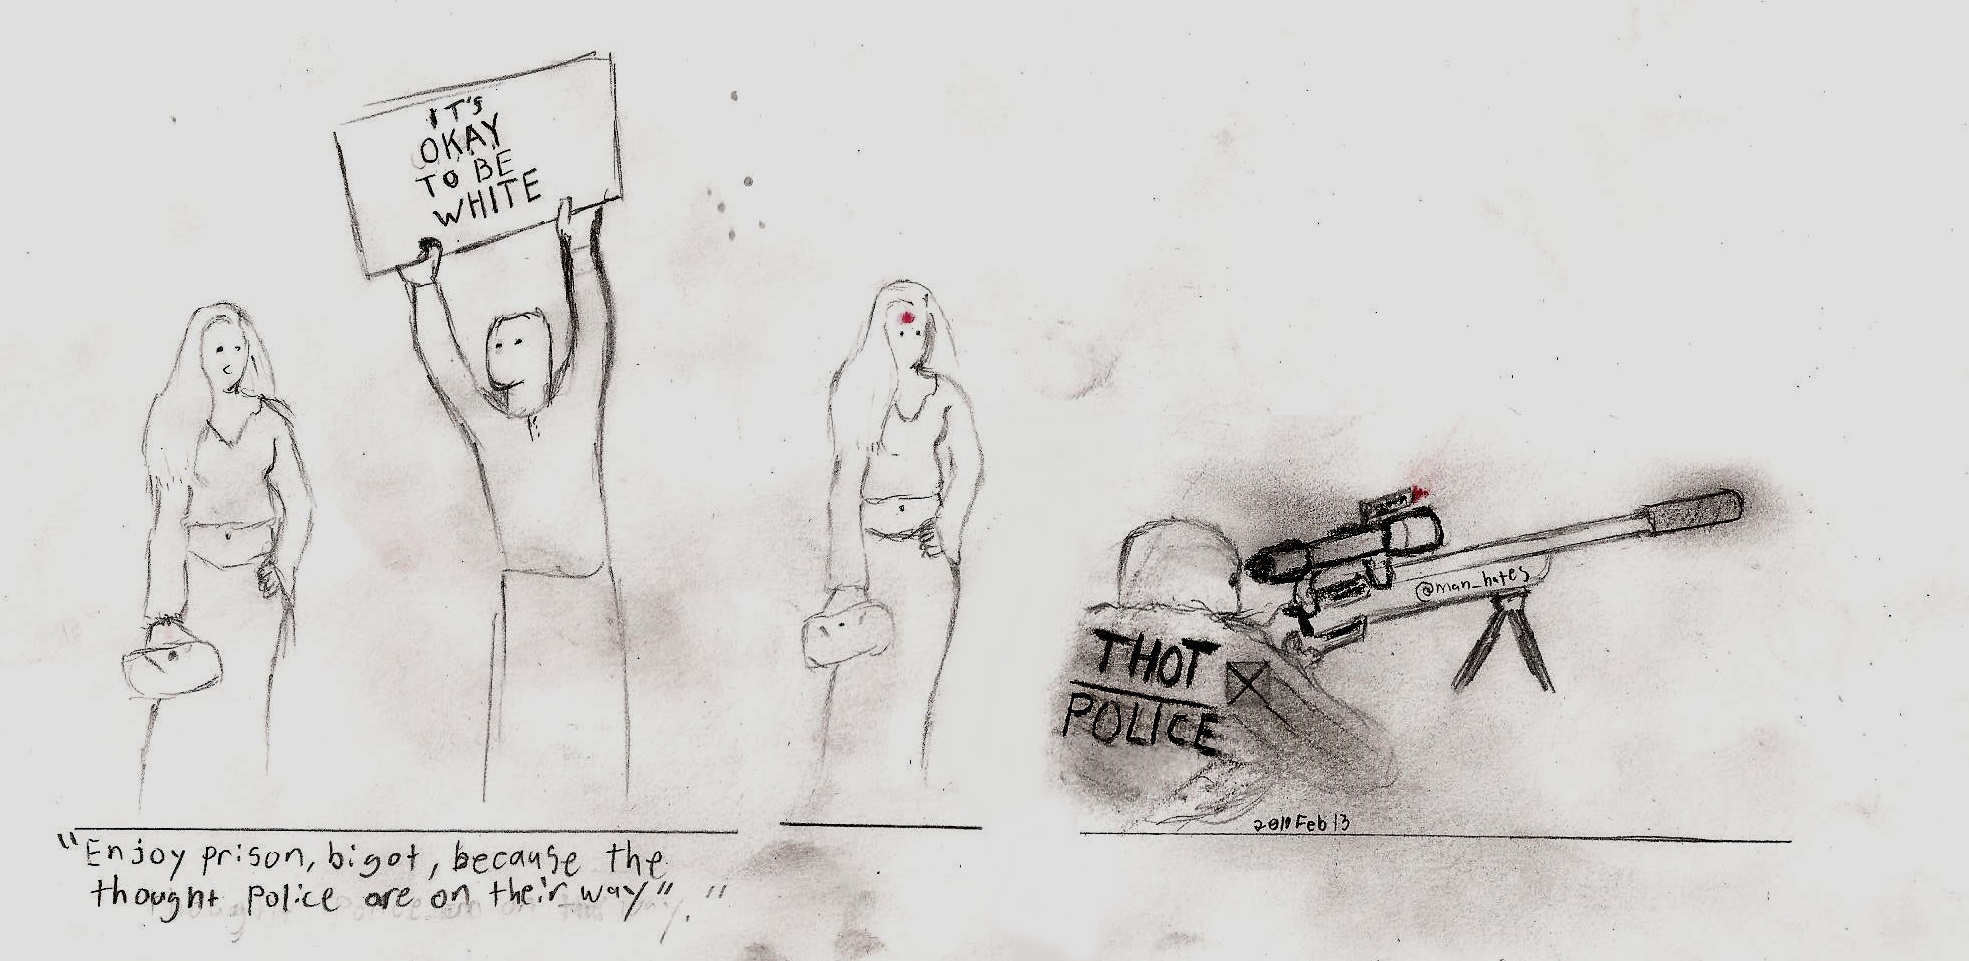 IT'S
OKAY
TO BE
WHITE
"Enjoy prison, bigot, because the
thought police are on their way".
@man_hates
THOT
POLICE
Feb 13